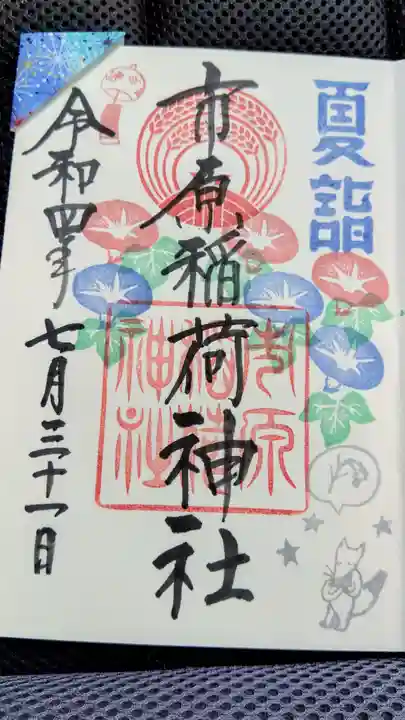 夏詣
市原稲荷神社
市原
稲荷
神社
令和四年
七月三十一日